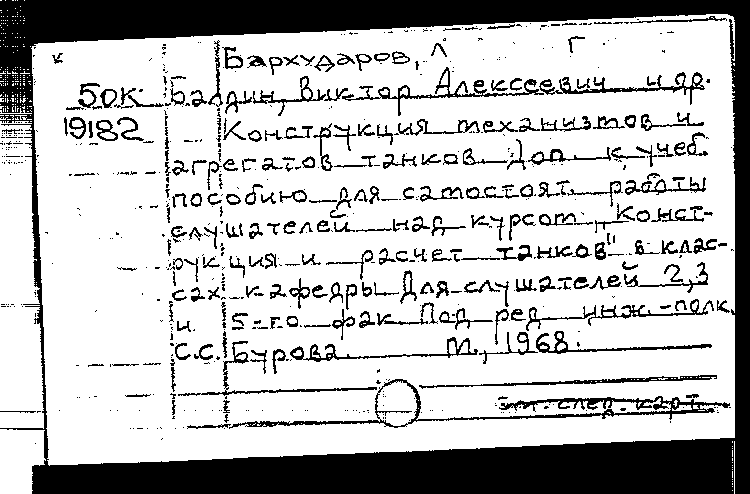 Бархударов, Л Г
50К Балдин, Виктор Алексеевич и др.
19182 Конструкция механизмов и
агрегатов танков. Доп. к учеб.
пособию для самостоят. работы
слушателей над курсом „Конст-
рукция и расчет танков" в клас-
сах кафедры Для слушателей 2,3
и 5-го фак. Под ред. инж.-полк.
С.С. Бурова. М., 1968.
см. след. карт.